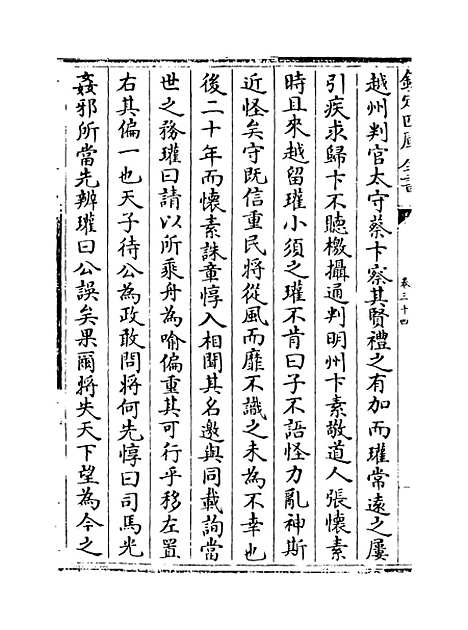 欽定四庫全書
卷三十四
越州判官太守蔡卞察其賢禮之有加而瓘常遠之屢
引疾求歸卞不聽檄攝通判明州卞素敬道人張懷素
時且來越留瓘小須之瓘不肯曰子不語怪力亂神斯
近怪矣守既信重民將從風而靡不識之未為不幸也
後二十年而懷素誅童惇入相聞其名邀與同載詢當
世之務瓘曰請以所乘舟為喻偏重其可行乎移左置
右其偏一也天子待公為政敢問將何先惇曰司馬光
姦邪所當先辨瓘曰公誤矣果爾將失天下望為今之